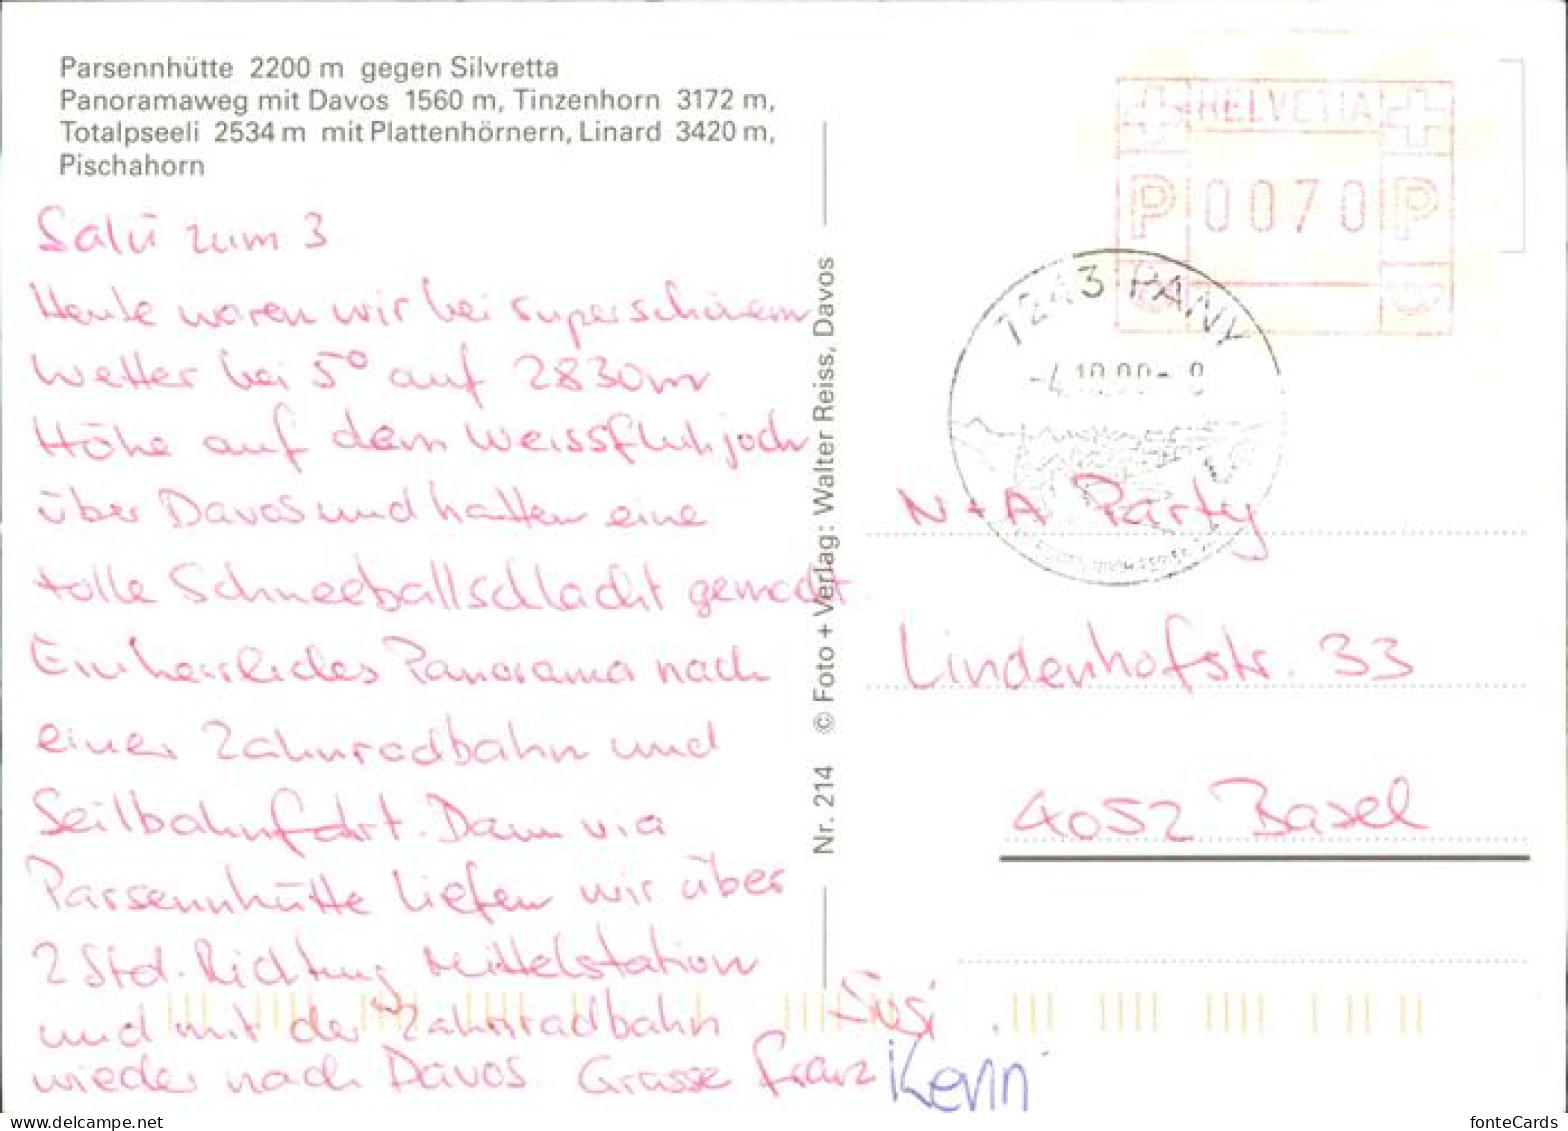 Parsennhütte 2200 m gegen Silvretta
Panoramaweg mit Davos 1560 m, Tinzenhorn 3172 m,
Totalpseeli 2534 m mit Plattenhörnern, Linard 3420 m,
Pischahorn
Salü zum 3
Heute waren wir bei superschönem
Wetter bei 5° auf 2830m
Höhe auf dem Weissfluhjoch
über Davos und hatten eine
tolle Schneeballschlacht gemacht
Ein herrliches Panorama nach
einer Zahnradbahn und
Seilbahnfahrt. Dann via
Parsennhütte liefen wir über
2 Std. Richtung Mittelstation
und mit der Zahnradbahn
wieder nach Davos. Grüsse Franz
Susi
Kevin
Nr. 214 © Foto + Verlag: Walter Reiss, Davos
HELVETIA
P 0070 P
7243 PANY
N + A. Party
Lindenhofstr. 33
4052 Basel
fonteCards